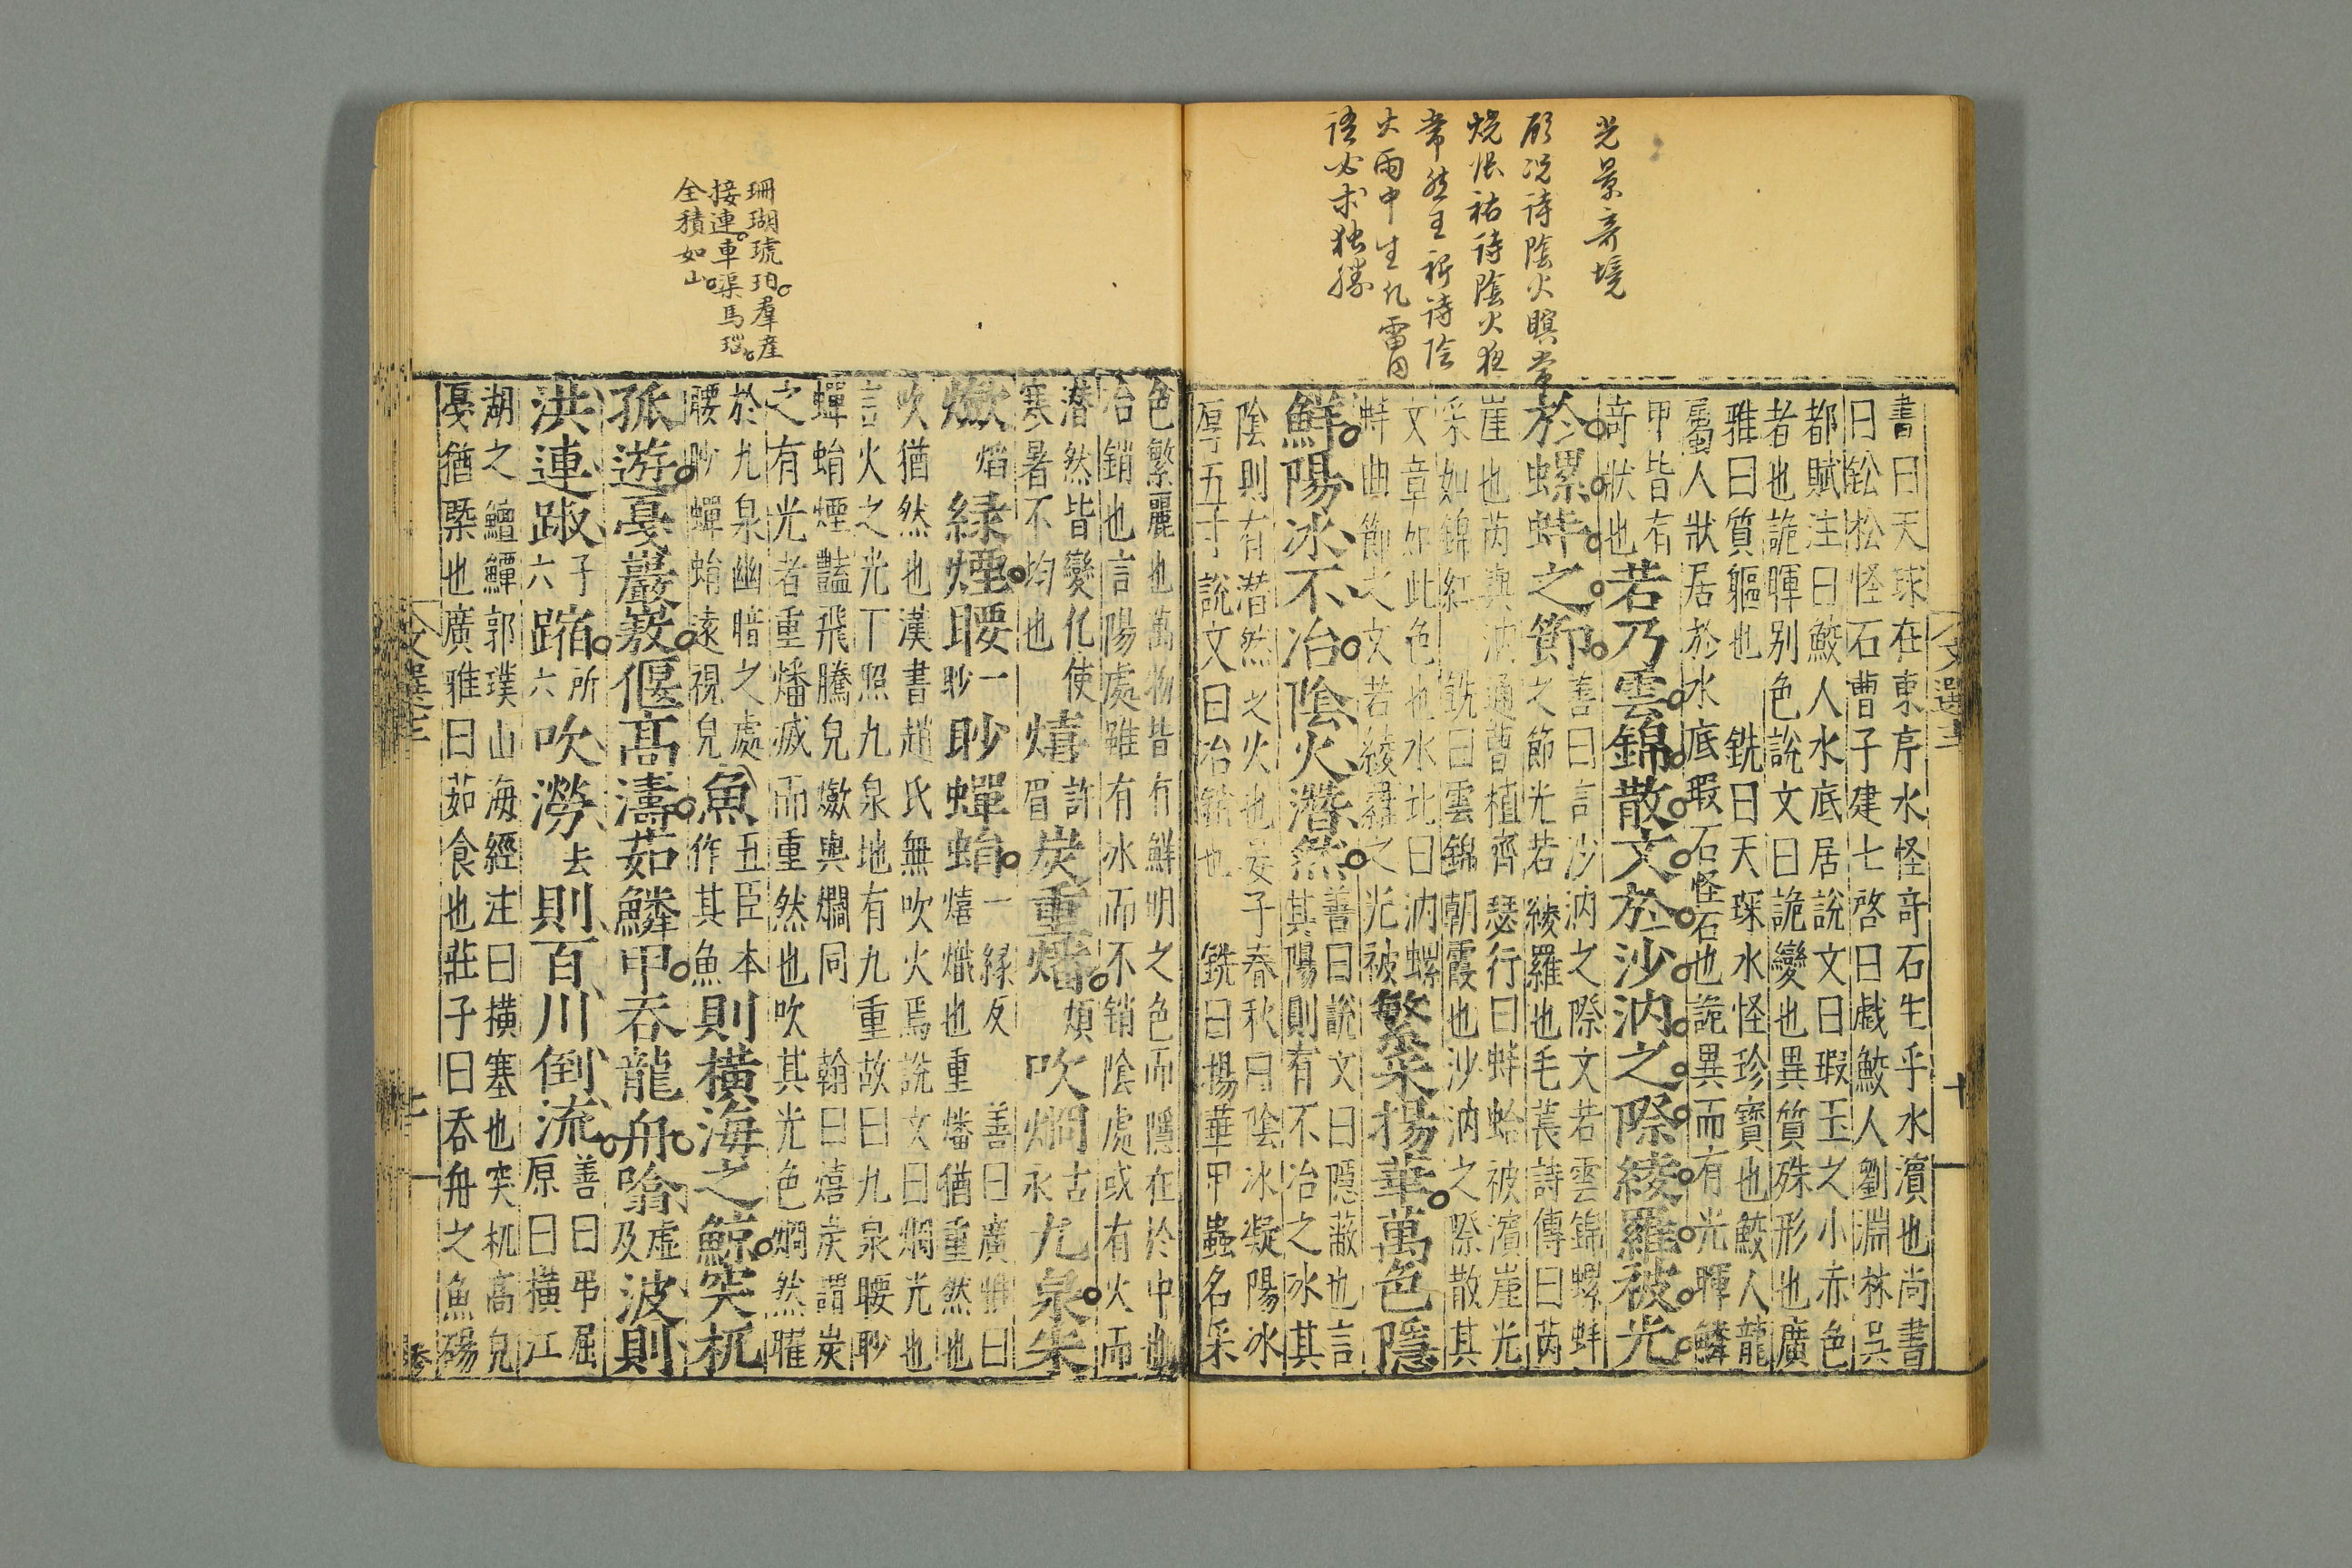 光景奇境
顧况詩陰火暝常
燒張祜詩陰火夜
常然王初詩陰
火雨中生凡雷同
語必求独勝
書曰天球在東序水怪奇石生乎水濵也尚書
曰鈆松怪石曹子建七啓曰戯鮫人劉淵林吳
都賦注曰鮫人水底居說文曰瑕玉之小赤色
者也詭暉别色說文曰詭變也異質殊形也廣
雅曰質軀也 銑曰天琛水怪珍寶也鮫人龍
屬人狀居於水底瑕石怪石也詭異而有光暉鱗
甲皆有
竒狀也
若乃雲錦散文於沙汭之際綾羅被光
於螺蚌之節
善曰言沙汭之際文若雲錦螺蚌
之節光若綾羅也毛萇詩傳曰芮
崖也芮與汭通曹植齊瑟行曰蚌蛤被濵崖光
采如錦紅 銑曰雲錦朝霞也沙汭之際散其
文章如此色也水北曰汭螺
蚌曲節之文若綾羅之光被
繁采揚華萬色隱
鮮陽冰不冶陰火潛然
善曰說文曰隱蔽也言
其陽則有不冶之冰其
陰則有潜然之火也晏子春秋曰陰冰凝陽冰
厚五寸說文曰冶銷也 銑曰揚華甲蟲名采
文選十二
十
珊瑚琥珀羣産
接連車渠馬瑙
全積如山
色繁麗也萬物皆有鮮明之色而隱在於中也
冶銷也言陽處雖有冰而不銷陰處或有火而
潜然皆變化使
寒暑不均也
熺許眉炭重燔煩吹烱古永九泉朱
燩焰緑煙腰一眇眇蟬蛸
一緑反 善曰廣雅曰
熺熾也重燔猶重然也
吹猶然也漢書趙氏無吹火焉說文曰烱光也
言火之光下照九泉地有九重故曰九泉腰眇
蟬蛸煙豔飛騰皃燩與爓同 翰曰熺炭謂炭
之有光者重燔滅而重然也吹其光色烱然㸌
於九泉幽暗之處
腰眇蟬蛸遠視皃
魚五臣本作其魚則橫海之鯨突杌
孤遊戞巖㟼偃髙濤茹鱗甲吞龍舟噏虛及波則
洪連踧子六蹜所六吹澇去則百川倒流
善曰弔屈
原曰橫江
湖之鱣鱏郭璞山海經注曰橫塞也突杌高皃
戞猶槩也廣雅曰茹食也莊子曰吞舟之魚碭
文選十二